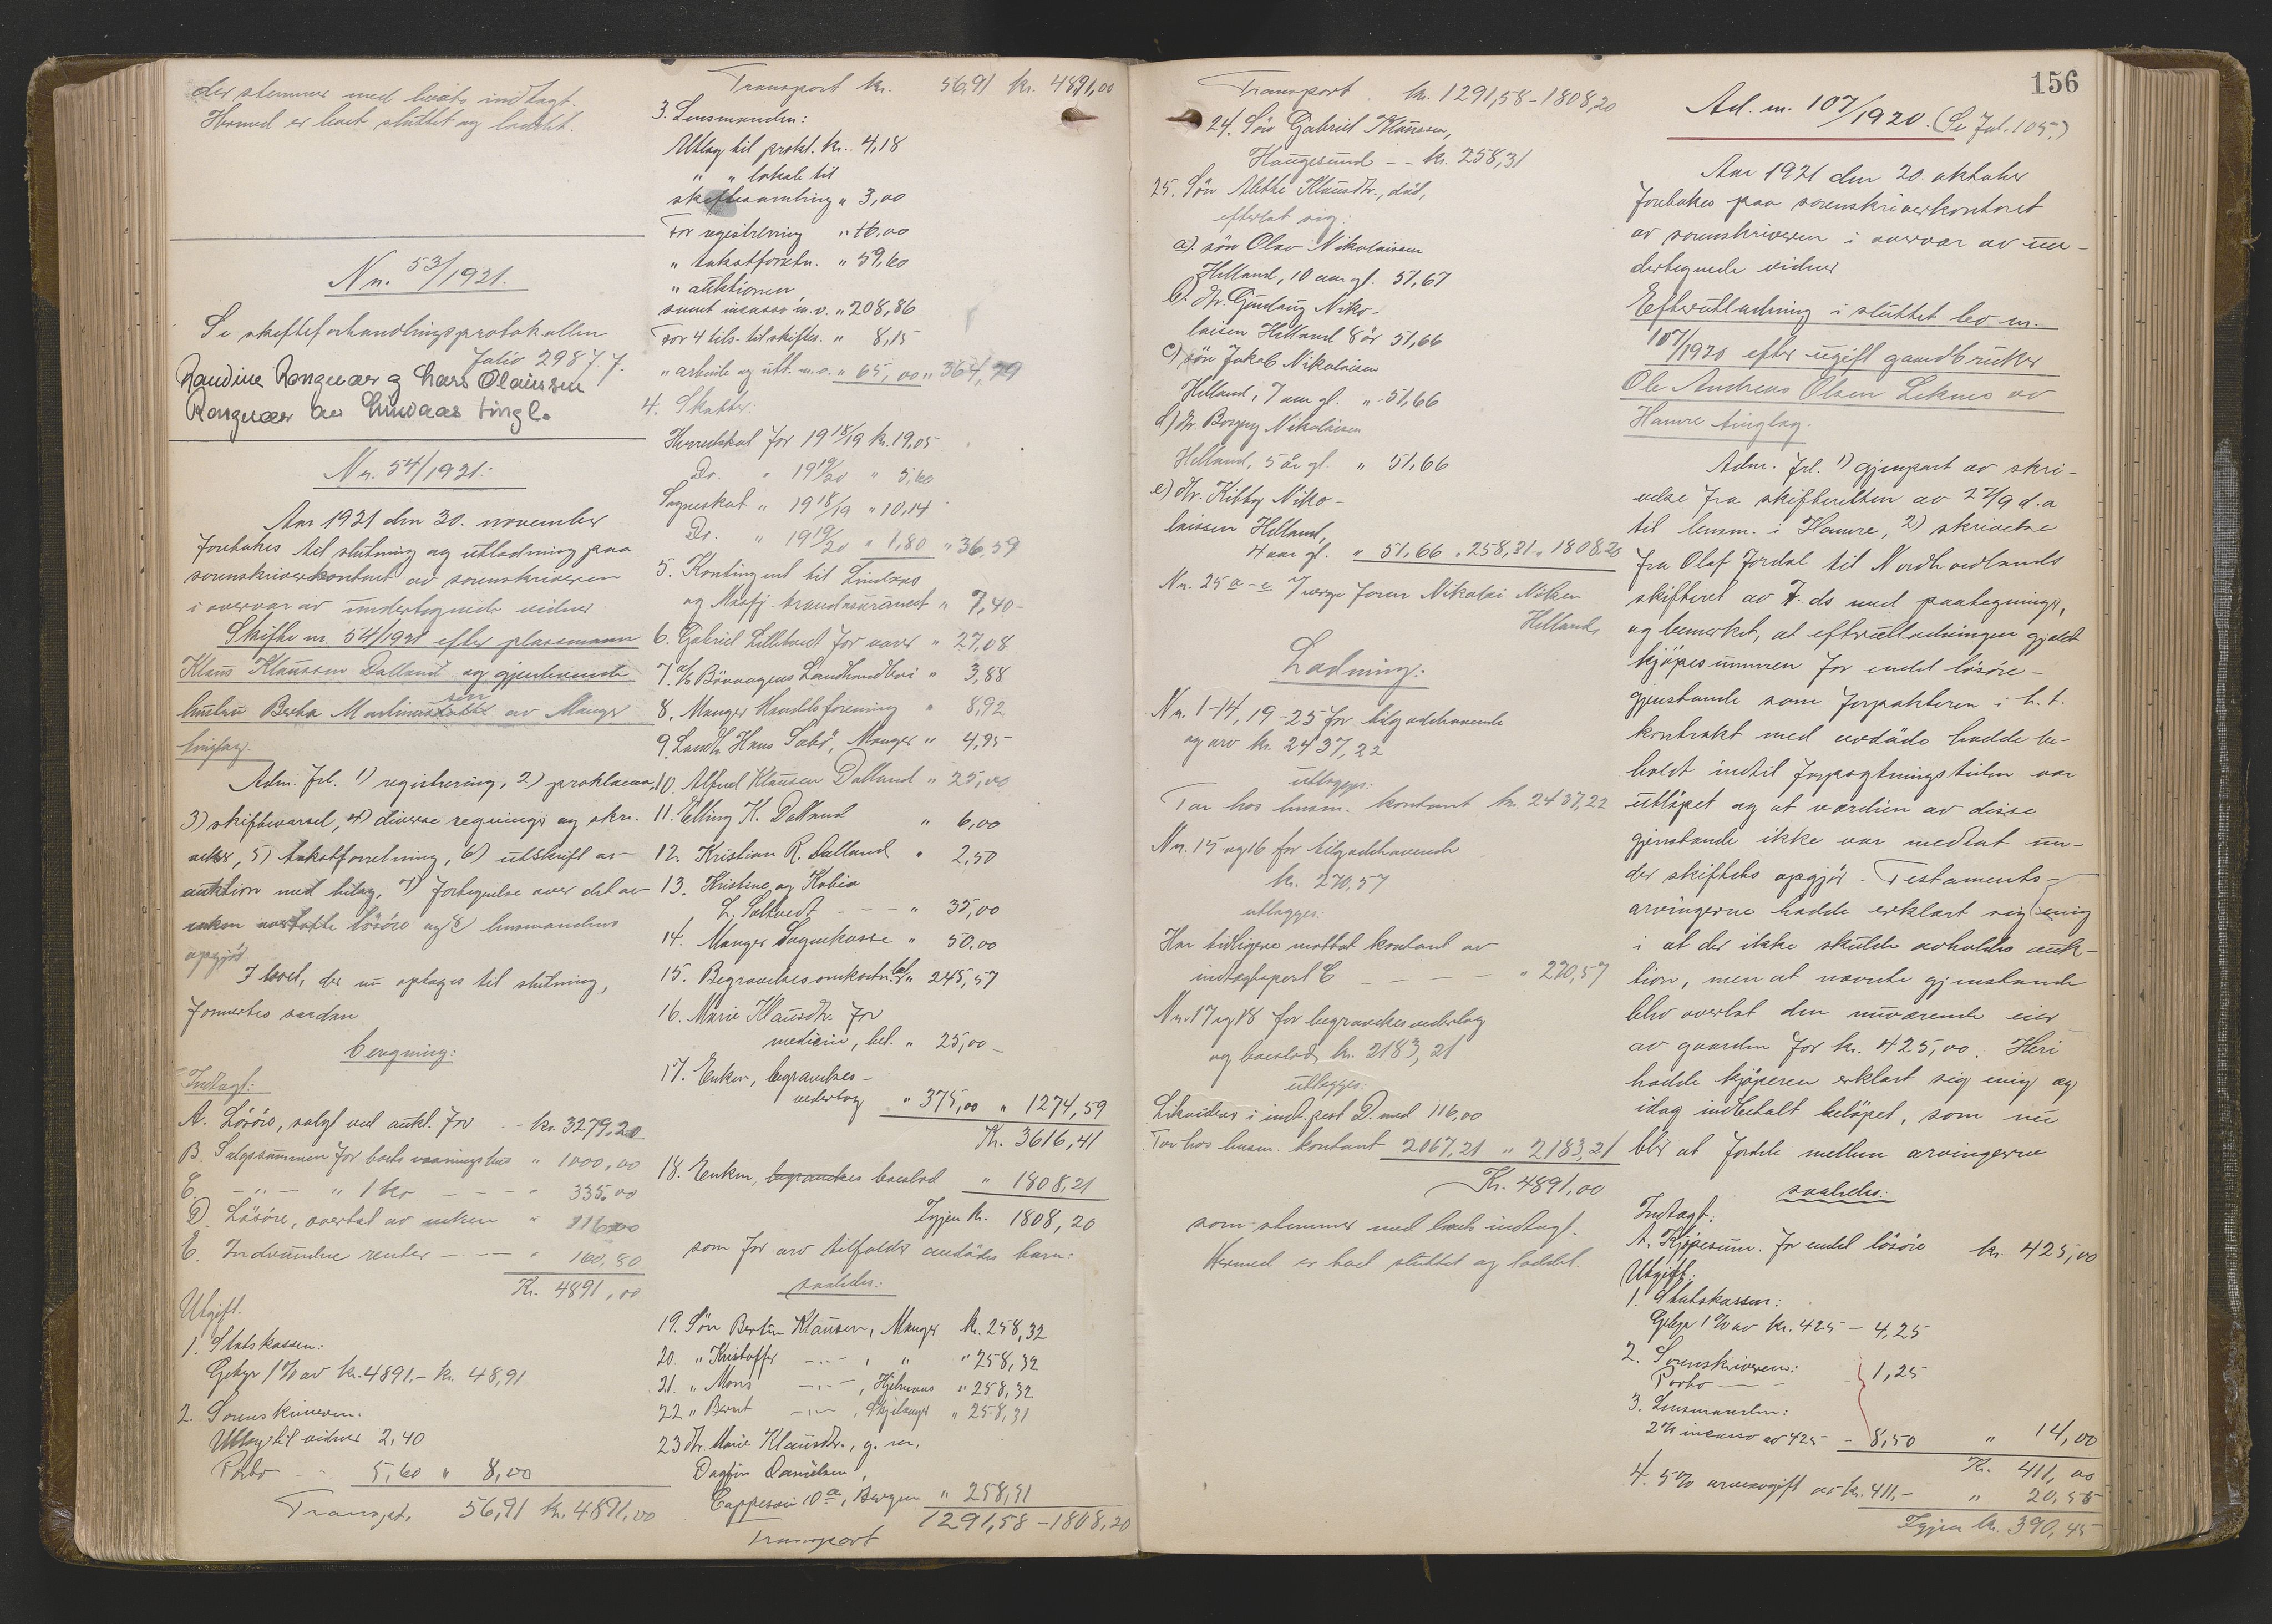 der stemmer med boets indtægt.
Hermed er boet sluttet og loddet.
Nr. 53/1921.
Se skifteforhandlingsprotokollen
folio 298 f. f.
Raudine Rongvær g Lars Olaussen
Rongvær av Lindaas tingl.
Nr. 54/1921:
Aar 1921 den 30. november
foretokes til slutning og utlodning paa
sorenskriverkontoret av sorenskriveren
i overvær av undertegnede vidner
Skifte nr. 54/1921 efter plassmann
Klaus Klaussen Dalland og gjenlevende
hustru Bertha Martinusdatter av Manger
tinglag.
Adm. frl. 1) registrering, 2) proklama,
3) skiftevarsel, 4) diverse regninger og skri-
velser, 5) takstforretning, 6) utskrift av
auktion med bilag, 7) fortegnelse over det av
enken overtatte lösöre og 8) lensmandens
opgjör.
I boet, der nu optages til slutning,
formertes saadan
beregning:
Indtægt:
A. Lösöre, solgt ved aukt. for - kr. 3279,20
B. Salgssummen for boets vaaningshus " 1000,00
C. - " - " 1 ko - - - " 335,00
D. Lösöre, overtat av enken " 116,00
E. Indvundne renter - - - " 160,80
Kr. 4891,00
Utgift.
1. Statskassen:
Gebyr 1% av kr. 4891.- kr. 48,91
2. Sorenskriveren.
Utlæg til vidner 2,40
Porto - - 5,60 " 8,00
Transpt. 56,91 kr. 4891,00
Transport kr. 56,91 kr. 4891,00
3. Lensmanden:
Utlæg til prokl. kr. 4,18
" " lokale til
skiftesamling " 3,00
For registrering " 16,00
" takstforretn. " 59,60
" auktionen
samt incasso m.v. " 208,86
For 4 tils. til skiftes. " 8,15
" arbeide og utt. m.v. " 65,00 " 364,79
4. Skatter:
Herredskat for 1918/19 kr. 19,05
Do. " 1919/20 " 5,60
Sogneskat " 1918/19 " 10,14
Do. " 1919/20 " 1,80 " 36,59
5. Kontingent til Lindaas
og Masfj. brandassurance " 7,40-
6. Gabriel Lilletvedt for varer " 27,08
7. A/S Bövaagens Landhandleri " 3,88
8. Manger Handelsforening " 8,92
9. Landh. Hans Sæbö, Manger " 4,95
10. Alfred Klausen Dalland " 25,00
11. Elling K. Dalland " 6,00
12. Kristian R. Dalland " 2,50
13. Kristine og Kobia
L. Toltvedt - - - " 35,00
14. Manger Sognekasse " 50.00
15. Begravelsesomkostn. bet. " 245,57
16. Marie Klausdtr. for
medicin, bet. " 25,00-
17. Enken, begravelses-
vederlag " 375,00 " 1274,59
Kr. 3616,41
18. Enken, begravelses boeslod " 1808,21
Igjen kr. 1808,20
som for arv tilfalder avdödes barn:
saaledes:
19. Sön Bertin Klausen, Manger kr. 258,32
20. " Kristoffer - " - , " " 258,32
21. " Mons - " - , Hjelmaas " 258,32
22 " Bernt - " - , Skjelanger " 258,31
23 dtr. Marie Klausdtr., g. m.
Dagfin Danielsen,
Cappesvei 10a, Bergen " 258,31
Transport 1291,58 - 1808,20
156
Transport kr. 1291,58 - 1808,20
24. Sön Gabriel Klaussen,
Haugesund - - kr. 258,31
25. Sön Alette Klausdtr., död,
efterlat sig:
a). sön Olav Nikolaissen
Helland, 10 aar gl. 51,67
b). dtr. Gudaug Niko-
laisen Helland 8 år 51,66
c) sön Jakob Nikolaisen
Helland, 7 aar gl. " 51,66
d) dtr. Borgny Nikolaisen
Helland, 5 år gl. " 51,66
e) dtr. Kitty Niko-
laissen Helland,
4 aar gl. " 51.66 " 258,31 " 1808,20
Nr. 25 a-e Verge faren Nikolai Nilsen
Helland,
Lodning:
Nr. 1-14, 19-25 for tilgodehavende
og arv kr. 2437,22
utlægges:
Tar hos lensm. kontant kr. 2437,22
Nr. 15 og 16 for tilgodehavende
kr. 270,57
utlægges:
Har tidligere mottat kontant av
indtægtspost C - - - " 270,57
Nr. 17 og 18 for begravelsesvederlag
og boeslod kr. 2183,21
utlægges:
Likvideres i indt. post D. med 116,00
Tar hos lensm. kontant 2067,21 " 2183,21
Kr. 4891,00
som stemmer med boets indtægt.
Hermed er boet sluttet og loddet.
Ad. nr. 107/1920. (Se fol. 105.)
Aar 1921 den 20. oktober
foretokes paa sorenskriverkontoret
av sorenskriveren i overvær av un-
dertegnede vidner
Efterutlodning i sluttet bo nr.
107/1920 efter ugift gaardbruker
Ole Andreas Olsen Leknes av
Hamre tinglag.
Adm. frl. 1) gjenpart av skri-
velse fra skifteretten av 27/9 d.a
til lensm. i Hamre, 2) skrivelse
fra Olaf Jordal til Nordhordlands
skifteret av 7. ds med paategninger,
og bemerket, at efterutlodningen gjaldt
kjöpesummen for endel lösöre-
gjenstande som forpakteren i h. t.
kontrakt med avdöde hadde be-
holdt indtil forpagtningstiden var
utlöpet og at værdien av disse
gjenstande ikke var medtat un-
der skiftets opgjör. Testaments-
arvingerne hadde erklært sig enig
i at der ikke skulde avholdes auk-
tion, men at nævnte gjenstande
blev overlat den nuværende eier
av gaarden for kr. 425,00. Heri
hadde kjöperen erklært sig enig og
idag indbetalt belöpet, som nu
blir at fordele mellem arvingerne
saaledes:
Indtægt:
A. Kjöpesum. for endel lösöre kr. 425,00
Utgift:
1. Statskassen:
Gebyr 1% av kr. 425 - 4,25
2. Sorenskriveren:
Porto - - 1,25
3. Lensmanden:
2% incasso av 425 - 8,50 " 14,00
Kr. 411,00
4. 5% arveavgift av kr. 411,- " 20,55
Igjen kr. 390,45